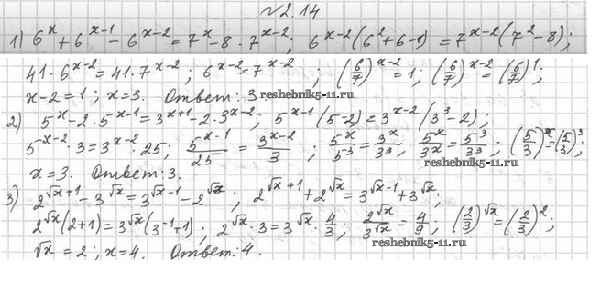 №2.14
1) 6^x + 6^(x-1) - 6^(x-2) = 7^x - 8 · 7^(x-2), 6^(x-2)(6^2+6-1) = 7^(x-2)(7^2-8);
41·6^(x-2) = 41·7^(x-2); 6^(x-2) = 7^(x-2); (6/7)^(x-2) = 1; (6/7)^(x-2) = (6/7)^1.
x-2=1; x=3. Ответ: 3
reshebnik5-11.ru
2) 5^x - 2·5^(x-1) = 3^(x+1) - 2·3^(x-2); 5^(x-1)(5-2) = 3^(x-2)(3^3-2);
5^(x-2)·3 = 3^(x-2)·25; 5^(x-1)/25 = 3^(x-2)/3; 5^x/5^3 = 3^x/3^3; 5^x/3^x = 5^3/3^3; (5/3)^x = (5/3)^3;
x=3. Ответ: 3.
reshebnik5-11.ru
3) 2^(√x+1) - 3^√x = 3^(√x-1) - 2^√x; 2^(√x+1) + 2^√x = 3^(√x-1) + 3^√x;
2^√x(2+1) = 3^√x(3^(-1)+1); 2^√x·3 = 3^√x·4/3; 2^√x/3^√x = 4/9; (2/3)^√x = (2/3)^2;
√x = 2; x=4. Ответ: 4.
reshebnik5-11.ru